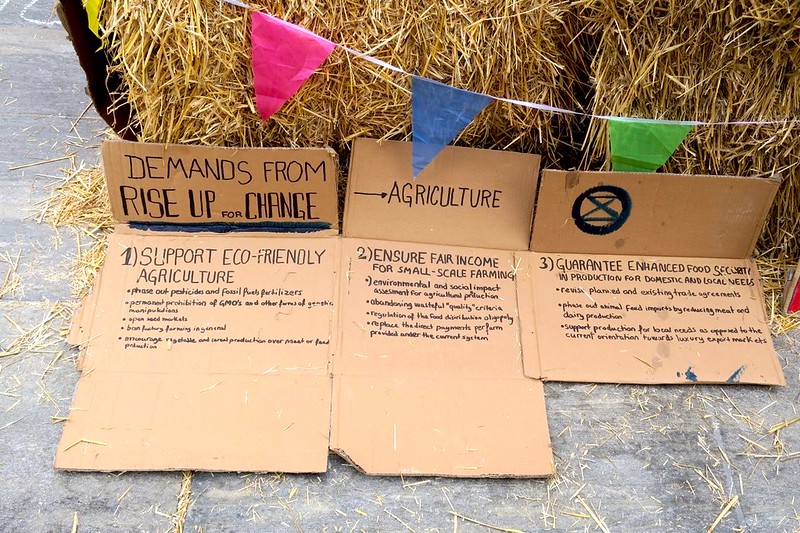 DEMANDS FROM
RISE UP FOR CHANGE
→ AGRICULTURE
1) SUPPORT ECO-FRIENDLY
AGRICULTURE
• phase out pesticides and fossil fuels fertilizers
• permanent prohibition of GMO's and other forms of genetic
manipulations
• open seed markets
• ban factory farming in general
• encourage vegetable and cereal production over meat or food
production
2) ENSURE FAIR INCOME
FOR SMALL-SCALE FARMING
•) environmental and social impact
assessment for agricultural production
• abandoning wasteful "quality" criteria
• regulation of the food distribution oligopoly
• replace the direct payments per farm
provided under the current system
3) GUARANTEE ENHANCED FOOD SECURITY
IN PRODUCTION FOR DOMESTIC AND LOCAL NEEDS
• revise planned and existing trade agreements
• phase out animal food imports by reducing meat and
dairy production
• support production for local needs as opposed to the
current orientation towards luxury export markets